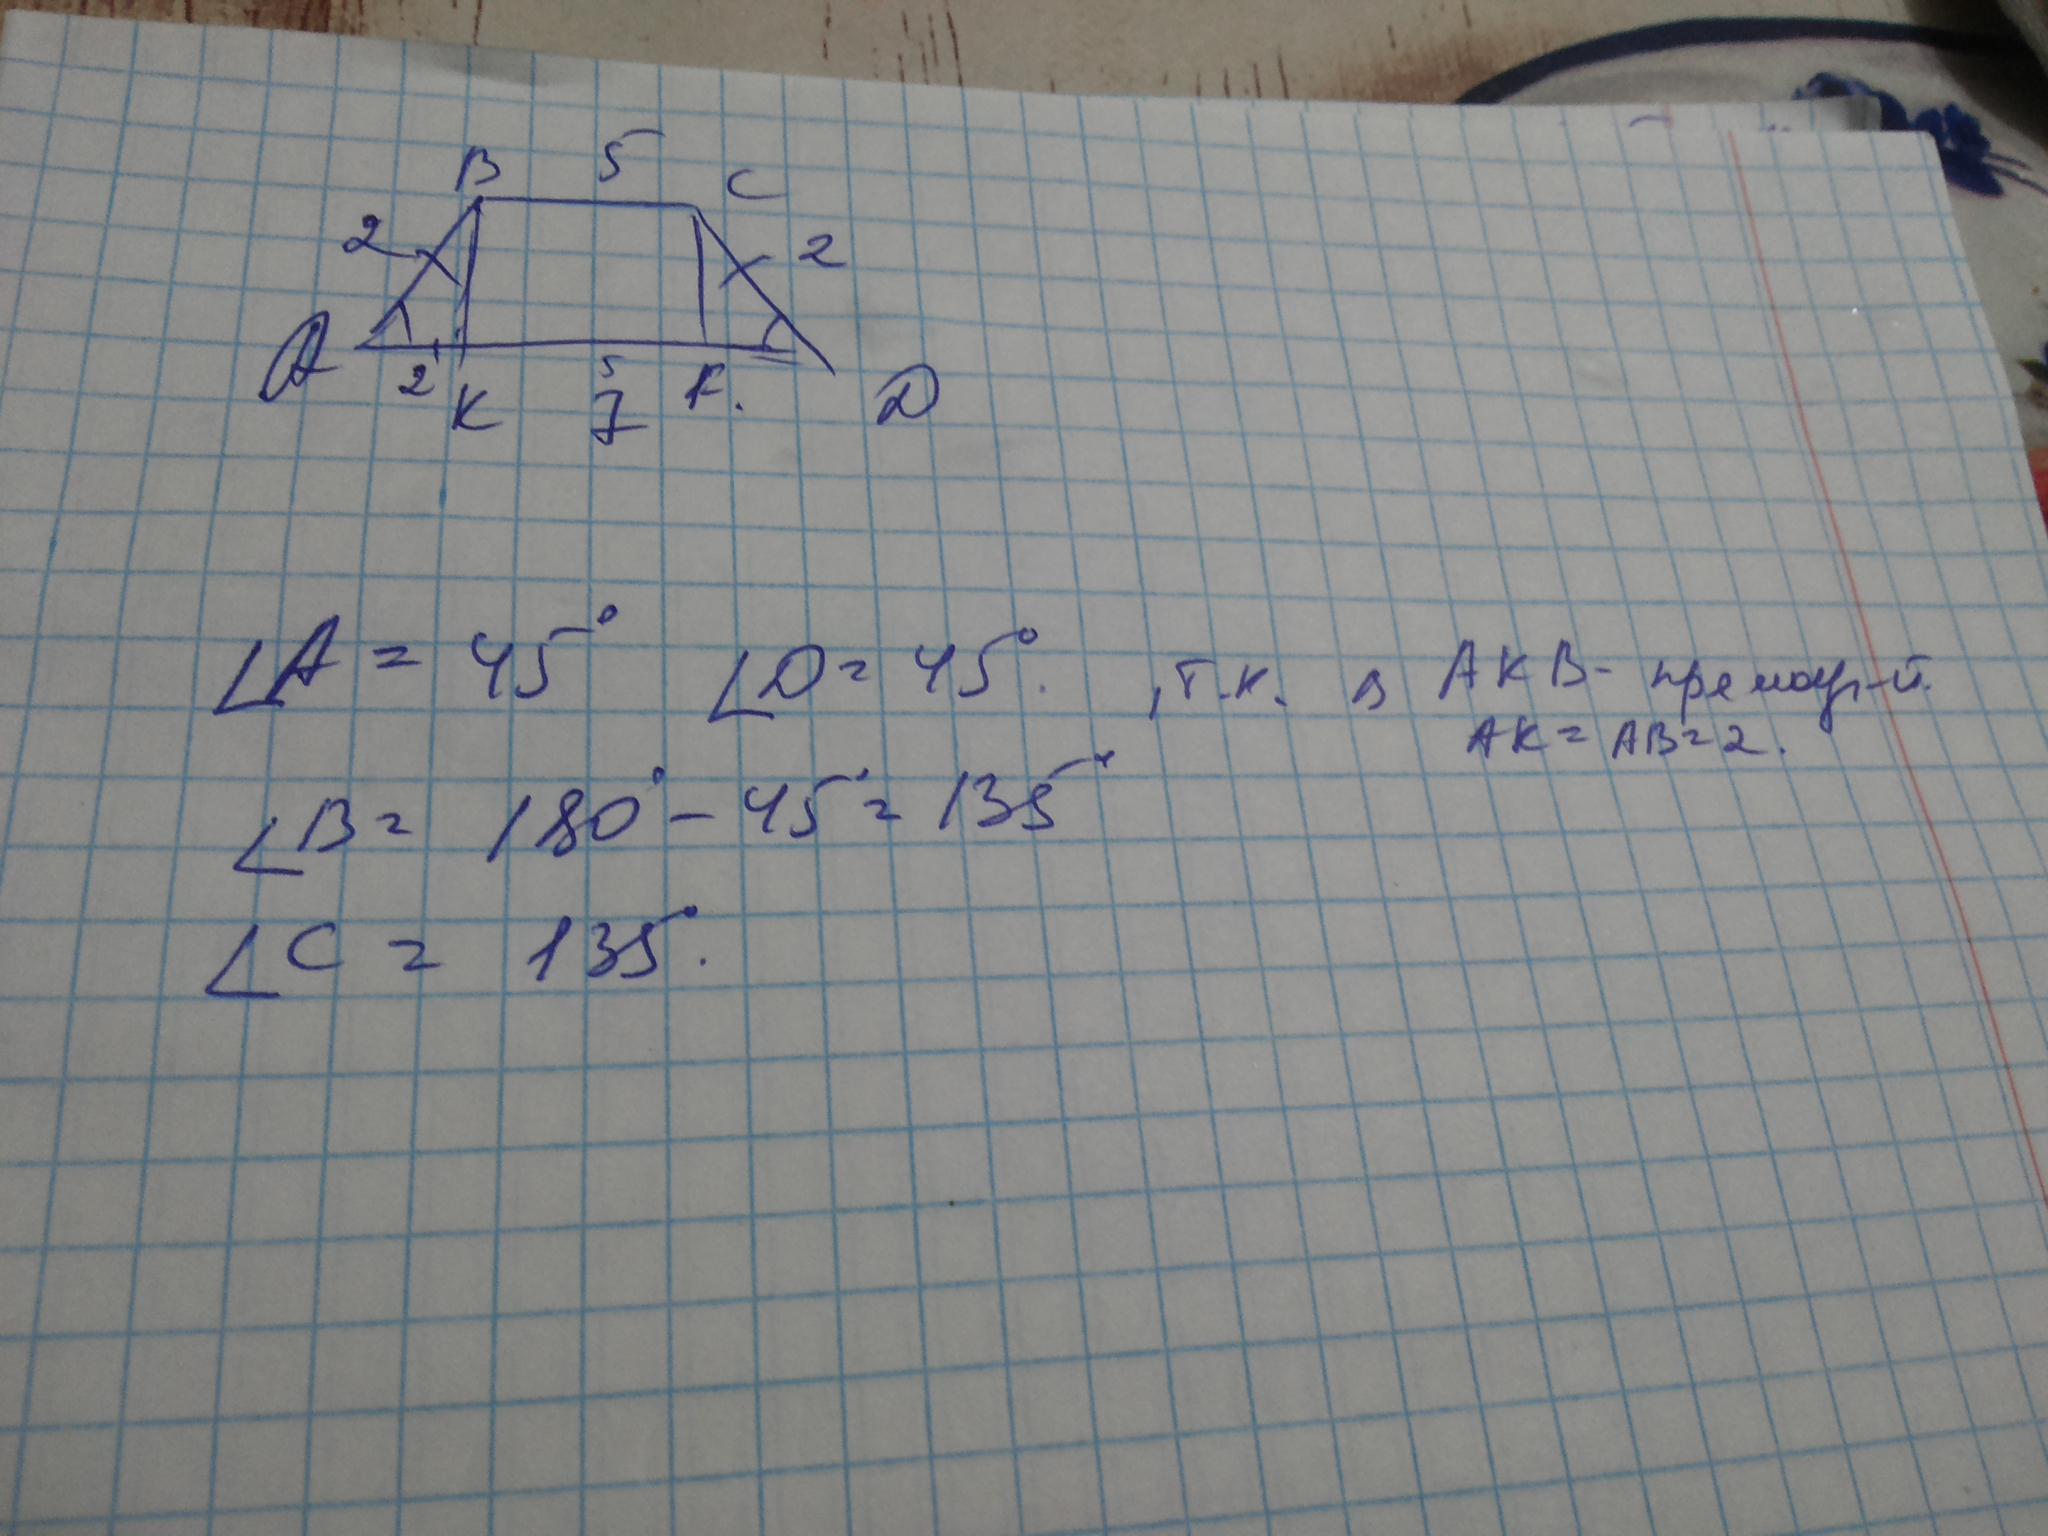 B 5 C
2 2
A 2 K 5 F. D
7
∠A = 45° ∠D = 45°. , т.к. в AKB - прямоуг-й.
AK = AB = 2.
∠B = 180° - 45° = 135°
∠C = 135°.